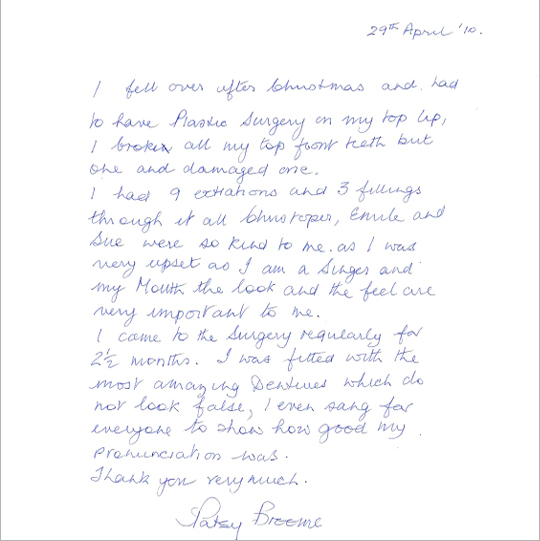 29th April '10.
I fell over after Christmas and had
to have Plastic Surgery on my top lip,
I broken all my top front teeth but
one and damaged one.
I had 9 extrations and 3 fillings
through it all Christoper, Emile and
Sue were so kind to me. as I was
very upset as I am a Singer and
my Mouth the look and the feel are
very important to me.
I came to the Surgery regularly for
2½ months. I was fitted with the
most amazing Dentures which do
not look false, I even sang for
everyone to show how good my
pronunciation was.
Thank you very much.
Patsy Broome